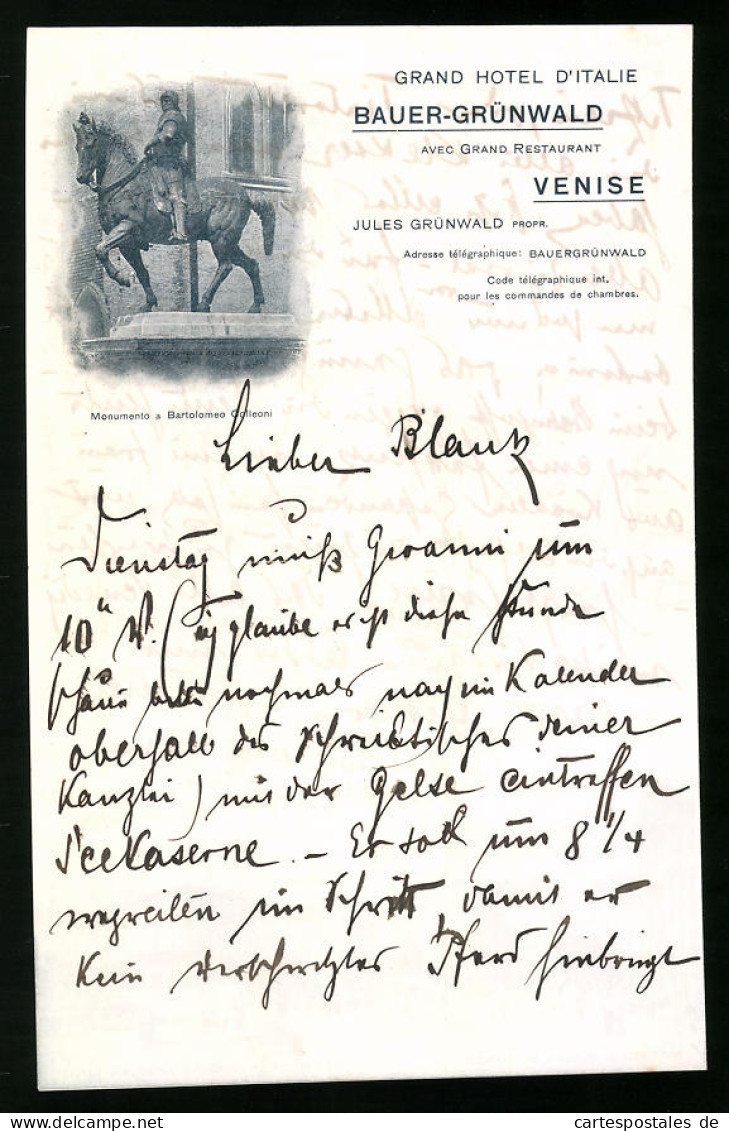 GRAND HOTEL D'ITALIE
BAUER-GRÜNWALD
AVEC GRAND RESTAURANT
VENISE
JULES GRÜNWALD PROPR.
Adresse télégraphique: BAUERGRÜNWALD
Code télégraphique int.
pour les commandes de chambres.
Monumento a Bartolomeo Colleoni
Lieber Blank
Dienstag muß Giovanni um
10 (ich glaube er ist diese Stunde
schaue bitte nochmals nach im Kalender
oberhalb des Schreibtisches deiner
Kanzlei) mit der Gelse eintreffen
Seekaserne. – Er soll um 8 1/4
wegreiten im Schritt damit er
kein verschwitztes Pferd hinbringt
cartespostales de